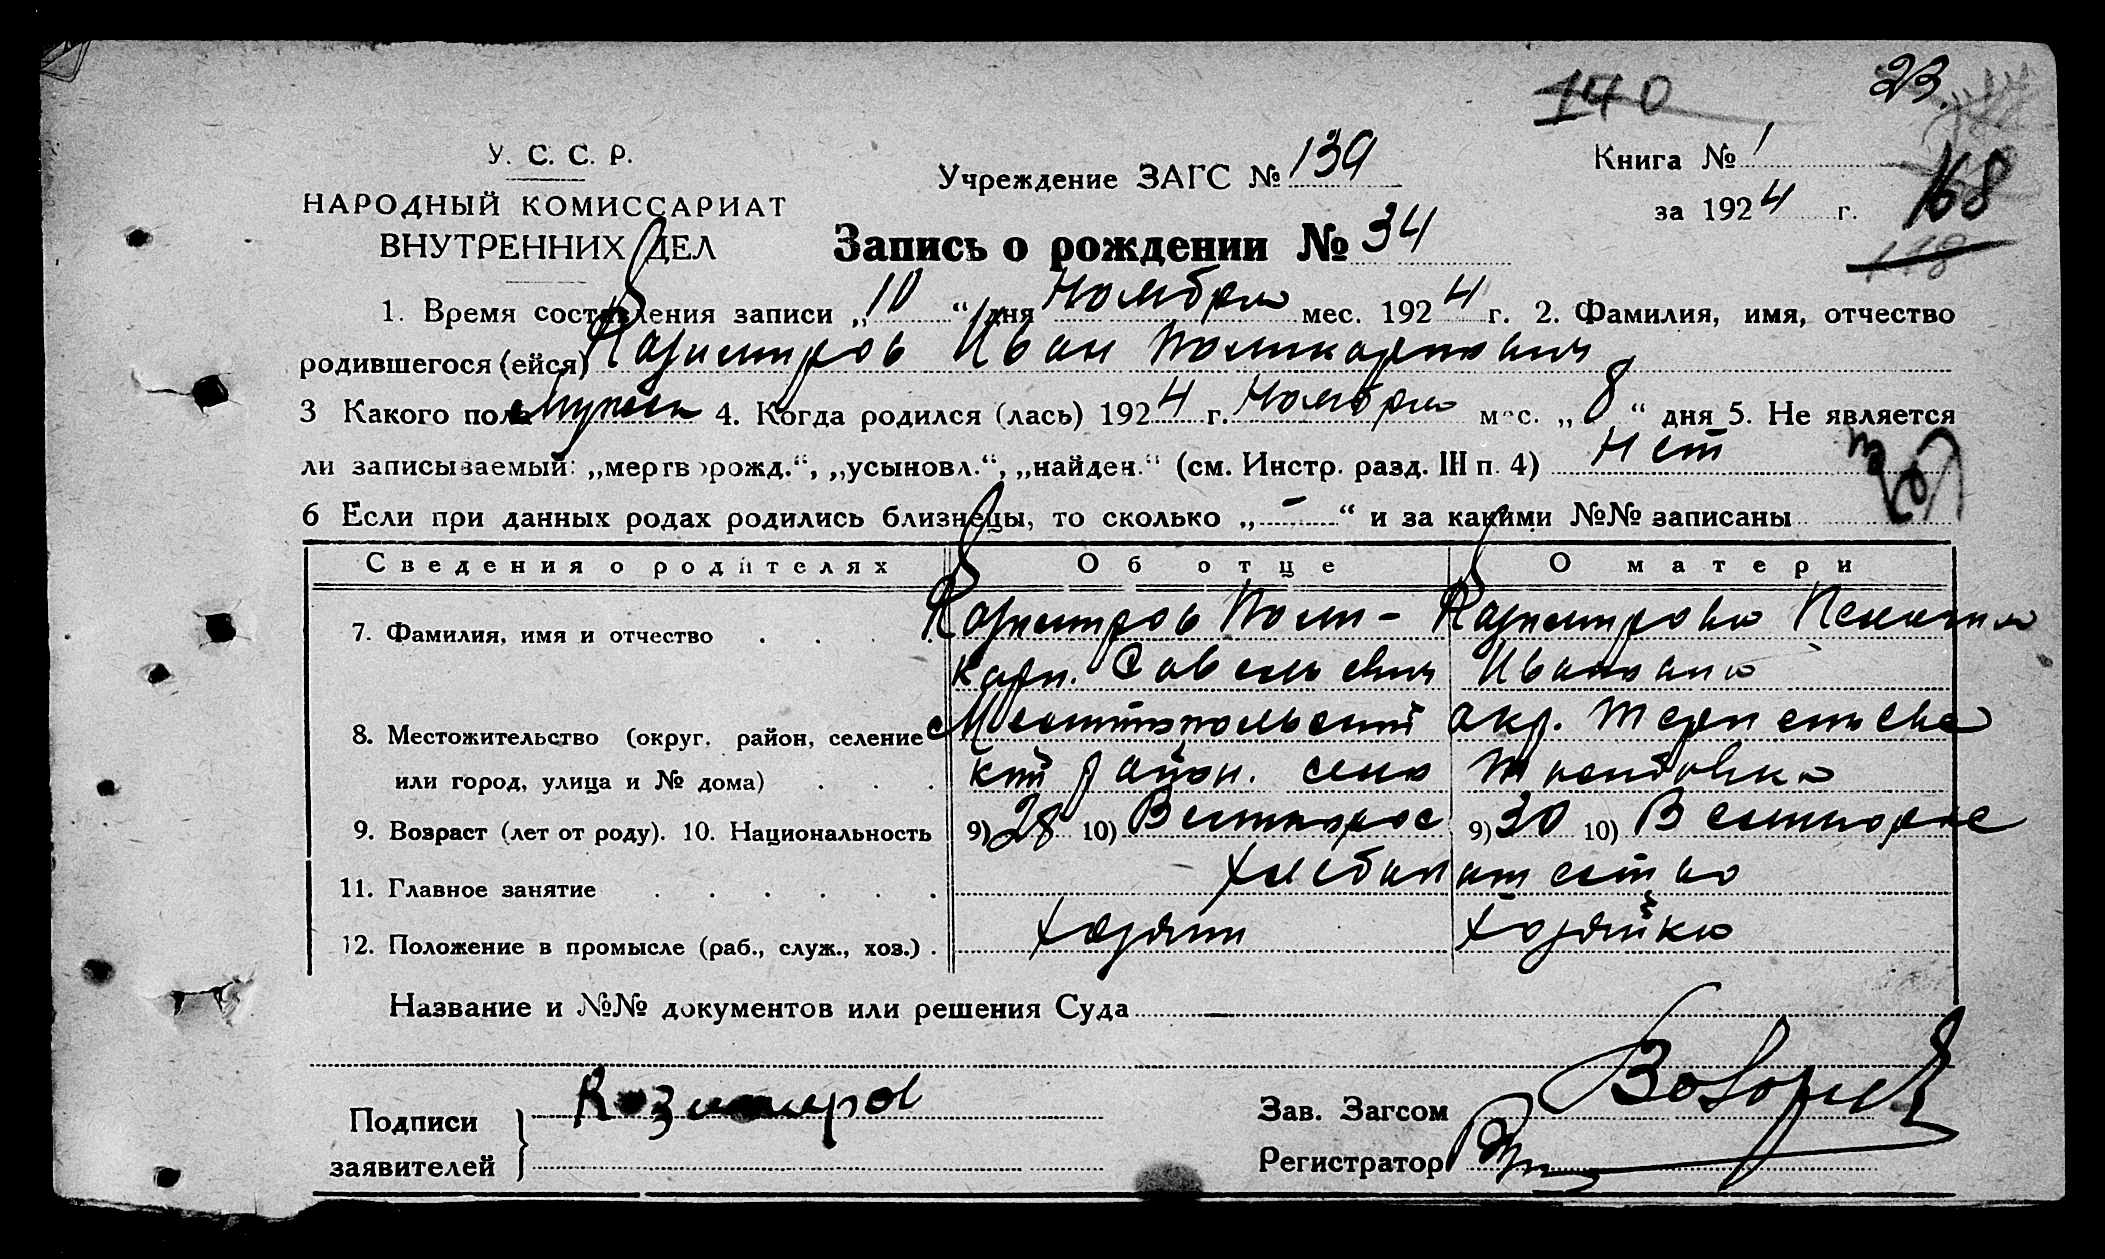 140
23.
У. С. С. Р.
НАРОДНЫЙ КОМИССАРИАТ
ВНУТРЕННИХ ДЕЛ
Учреждение ЗАГС № 139
Книга № 1
за 1924 г.
168
118
Запись о рождении № 34
1. Время составления записи „10“ дня Ноября мес. 1924 г. 2. Фамилия, имя, отчество
родившегося (ейся) Иван Поликарпович
3 Какого пола мужеск 4. Когда родился (лась) 1924 г. Ноября мес. „8“ дня 5. Не является
ли записываемый: „мертворожд.“, „усыновл.“, „найден.“ (см. Инстр. разд. III п. 4) Нет
6 Если при данных родах родились близнецы, то сколько „-“ и за какими №№ записаны
Сведения о родителях Об отце О матери
7. Фамилия, имя и отчество Поли- Пелагия
карп. Савельевич Ивановна
8. Местожительство (округ, район, селение Мелитопольский окр.
или город, улица и № дома) район. село
9. Возраст (лет от роду). 10. Национальность 9) 28 10) 9) 30 10)
11. Главное занятие хлебопашество
12. Положение в промысле (раб., служ., хоз.) Хозяин Хозяйка
Название и №№ документов или решения Суда —
Подписи
заявителей
Зав. Загсом
Регистратор